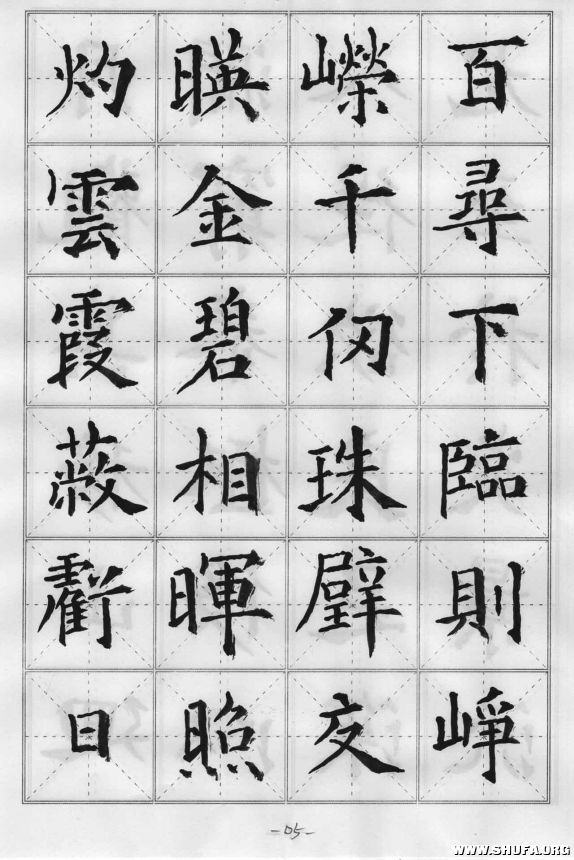 百尋下臨則崢
嶸千仞珠璧交
暎金碧相暉照
灼雲霞蔽虧日
-05-
WWW.SHUFA.ORG